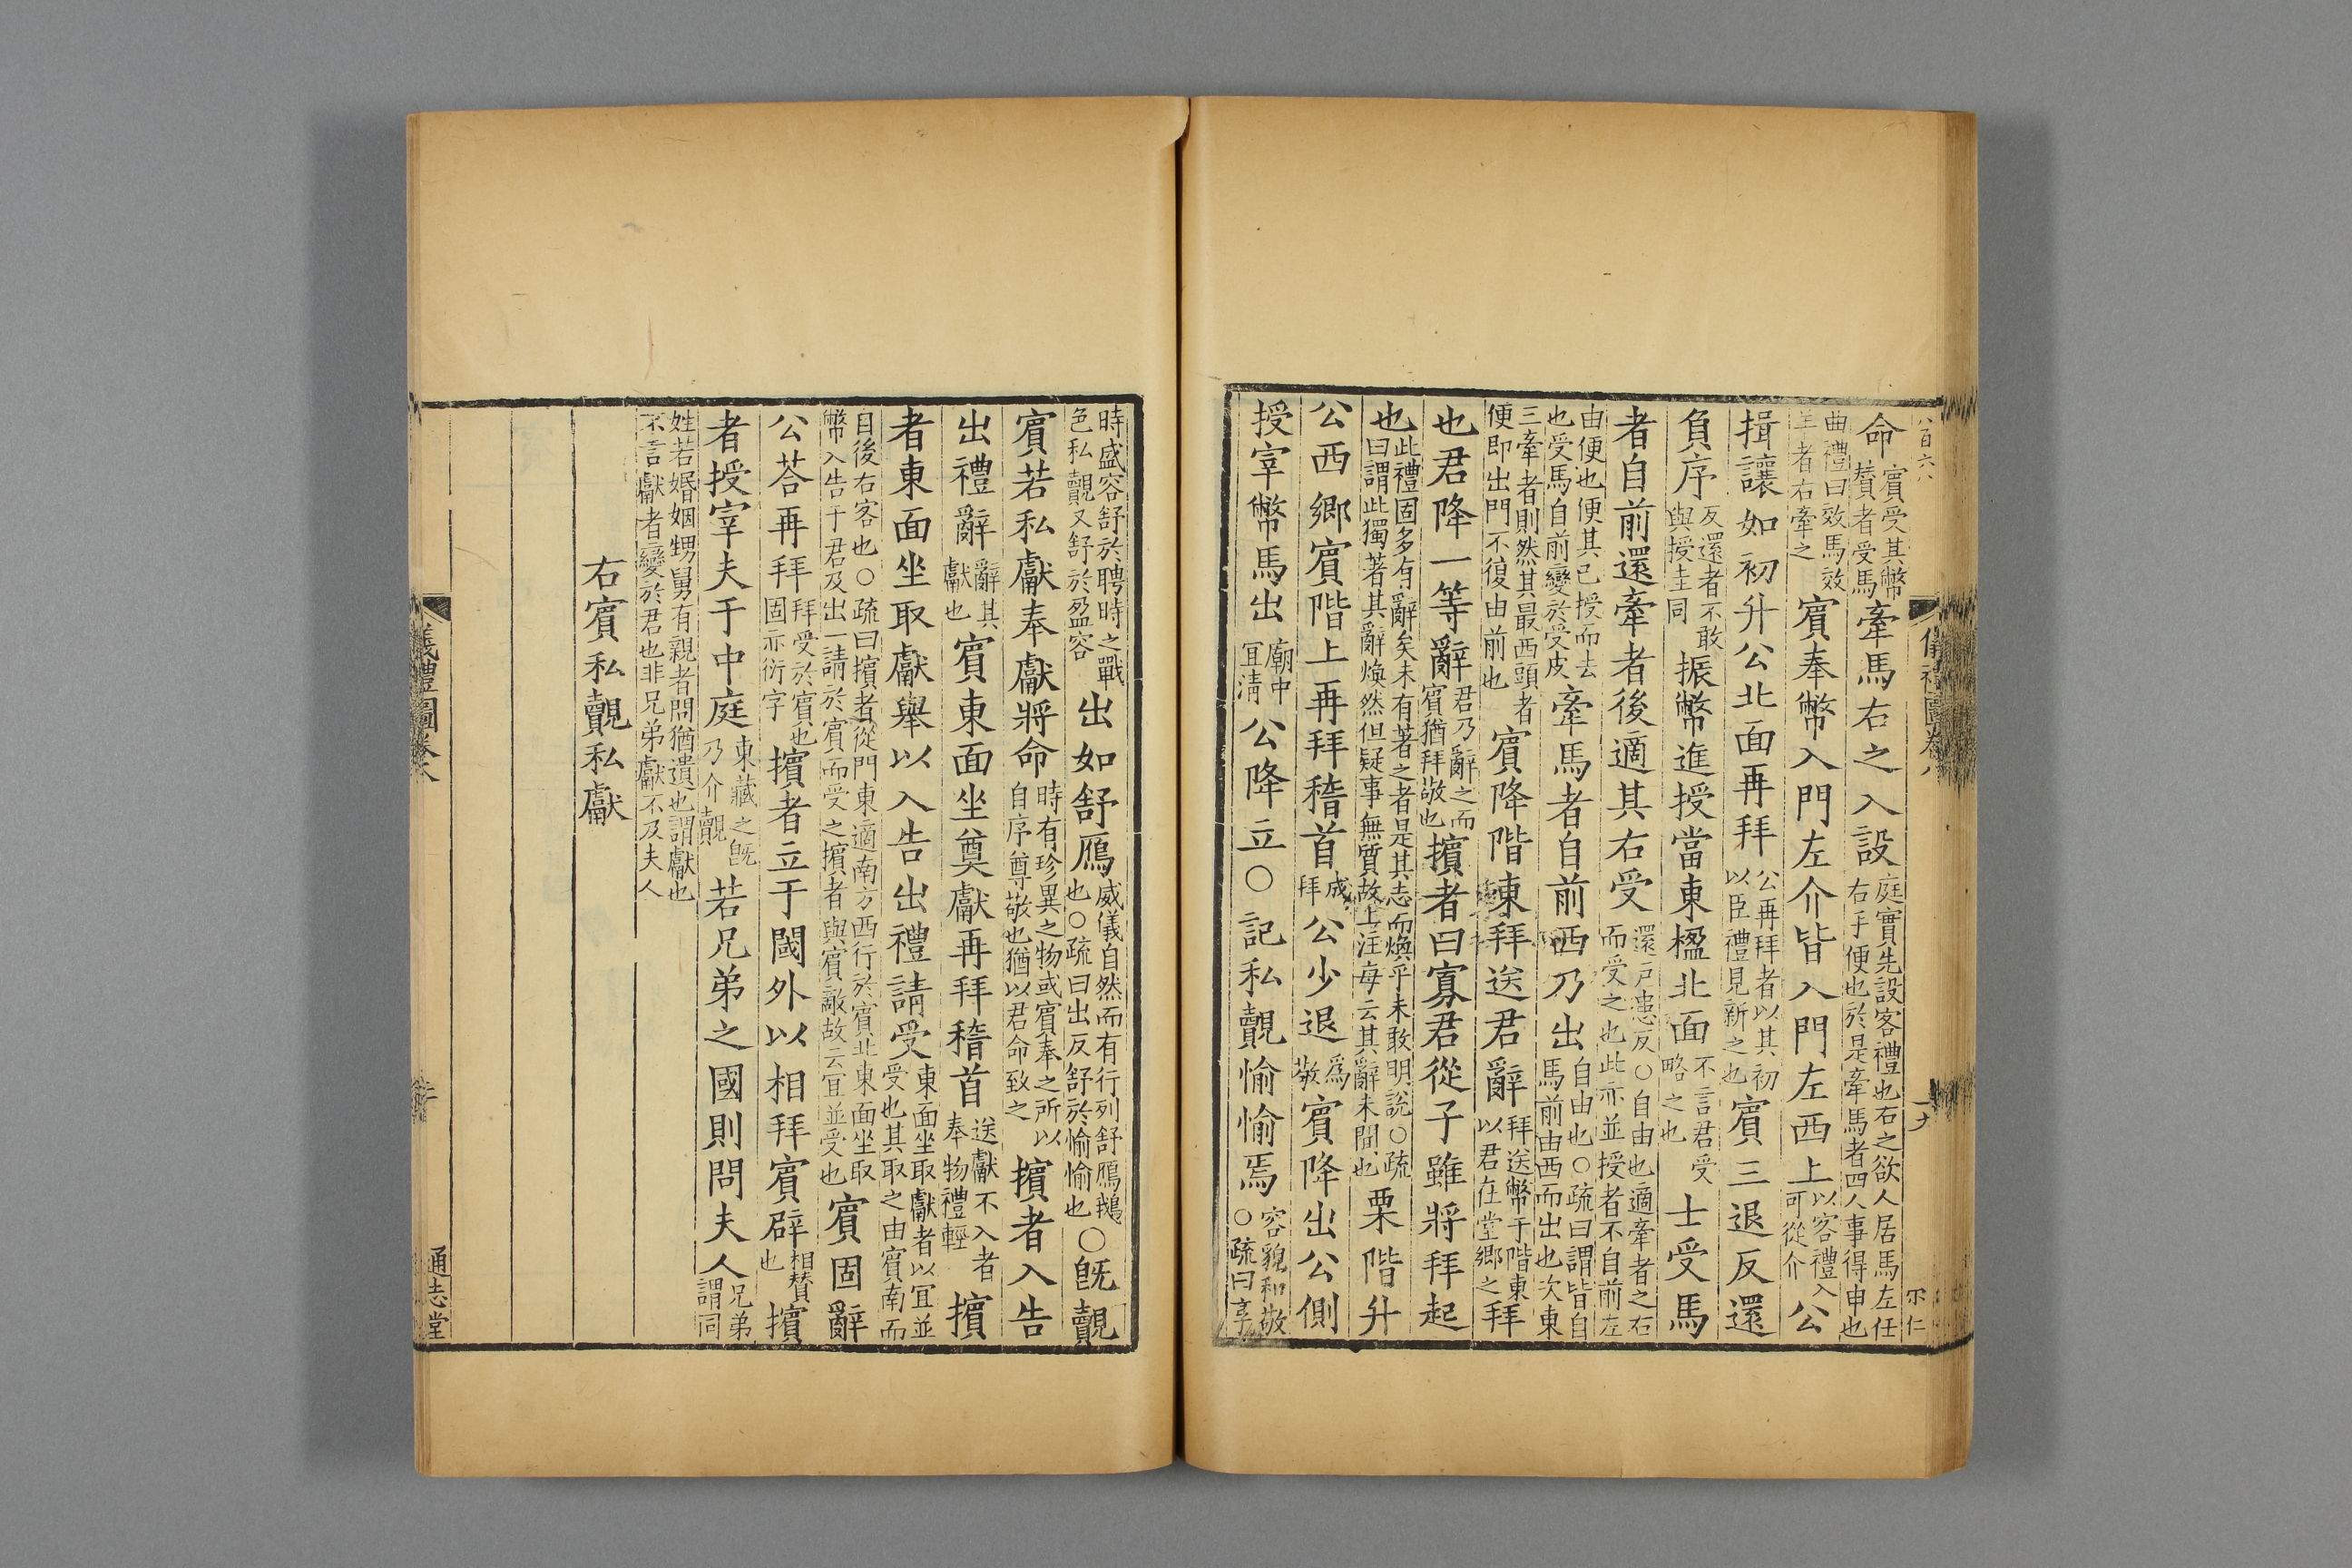 八百六八
儀禮圖卷八
十九
尔仁
命賓受其幣贊者受馬牽馬右之入設庭實先設客禮也右之欲人居馬左任右手便也於是牽馬者四人事得申也
曲禮曰效馬效羊者右牽之賓奉幣入門左介皆入門左西上以客禮入可從介公
揖讓如初升公北面再拜公再拜者以其初以臣禮見新之也賓三退反還
負序反還者不敢與授圭同振幣進授當東楹北面不言君受略之也士受馬
者自前還牽者後適其右受還戶患反○自由也適牽者之右而受之也此亦並授者不自前左
由便也便其已授而去也受馬自前變於受皮牽馬者自前西乃出自由也○疏曰謂皆自馬前由西而出也次東
三牽者則然其最西頭者便即出門不復由前也賓降階東拜送君辭拜送幣于階東以君在堂鄉之拜
也君降一等辭君乃辭之而賓猶拜敬也擯者曰寡君從子雖將拜起
也此禮固多有辭矣未有著之者是其志而煥乎未敢明說○疏曰謂此獨著其辭煥然但疑事無質故上注每云其辭未聞也栗階升
公西鄉賓階上再拜稽首成拜公少退爲敬賓降出公側
授宰幣馬出廟中宜清公降立○記私覿愉愉焉容貌和敬○疏曰享
時盛容舒於聘時之戰色私覿又舒於盈容出如舒鴈威儀自然而有行列舒鴈鵝也○疏曰出反舒於愉愉也○旣覿
賓若私獻奉獻將命時有珍異之物或賓奉之所以自序尊敬也猶以君命致之擯者入告
出禮辭辭其獻也賓東面坐奠獻再拜稽首送獻不入者奉物禮輕擯
者東面坐取獻舉以入告出禮請受東面坐取獻者以宜並受也其取之由賓南而
自後右客也○疏曰擯者從門東適南方西行於賓北東面坐取幣入告于君及出一請於賓而受之擯者與賓敵故云宜並受也賓固辭
公荅再拜拜受於賓也固亦衍字擯者立于閾外以相拜賓辟相贊也擯
者授宰夫于中庭東藏之旣乃介覿若兄弟之國則問夫人兄弟謂同
姓若婚姻甥舅有親者問猶遺也謂獻也不言獻者變於君也非兄弟獻不及夫人
右賓私覿私獻
儀禮圖卷八
通志堂